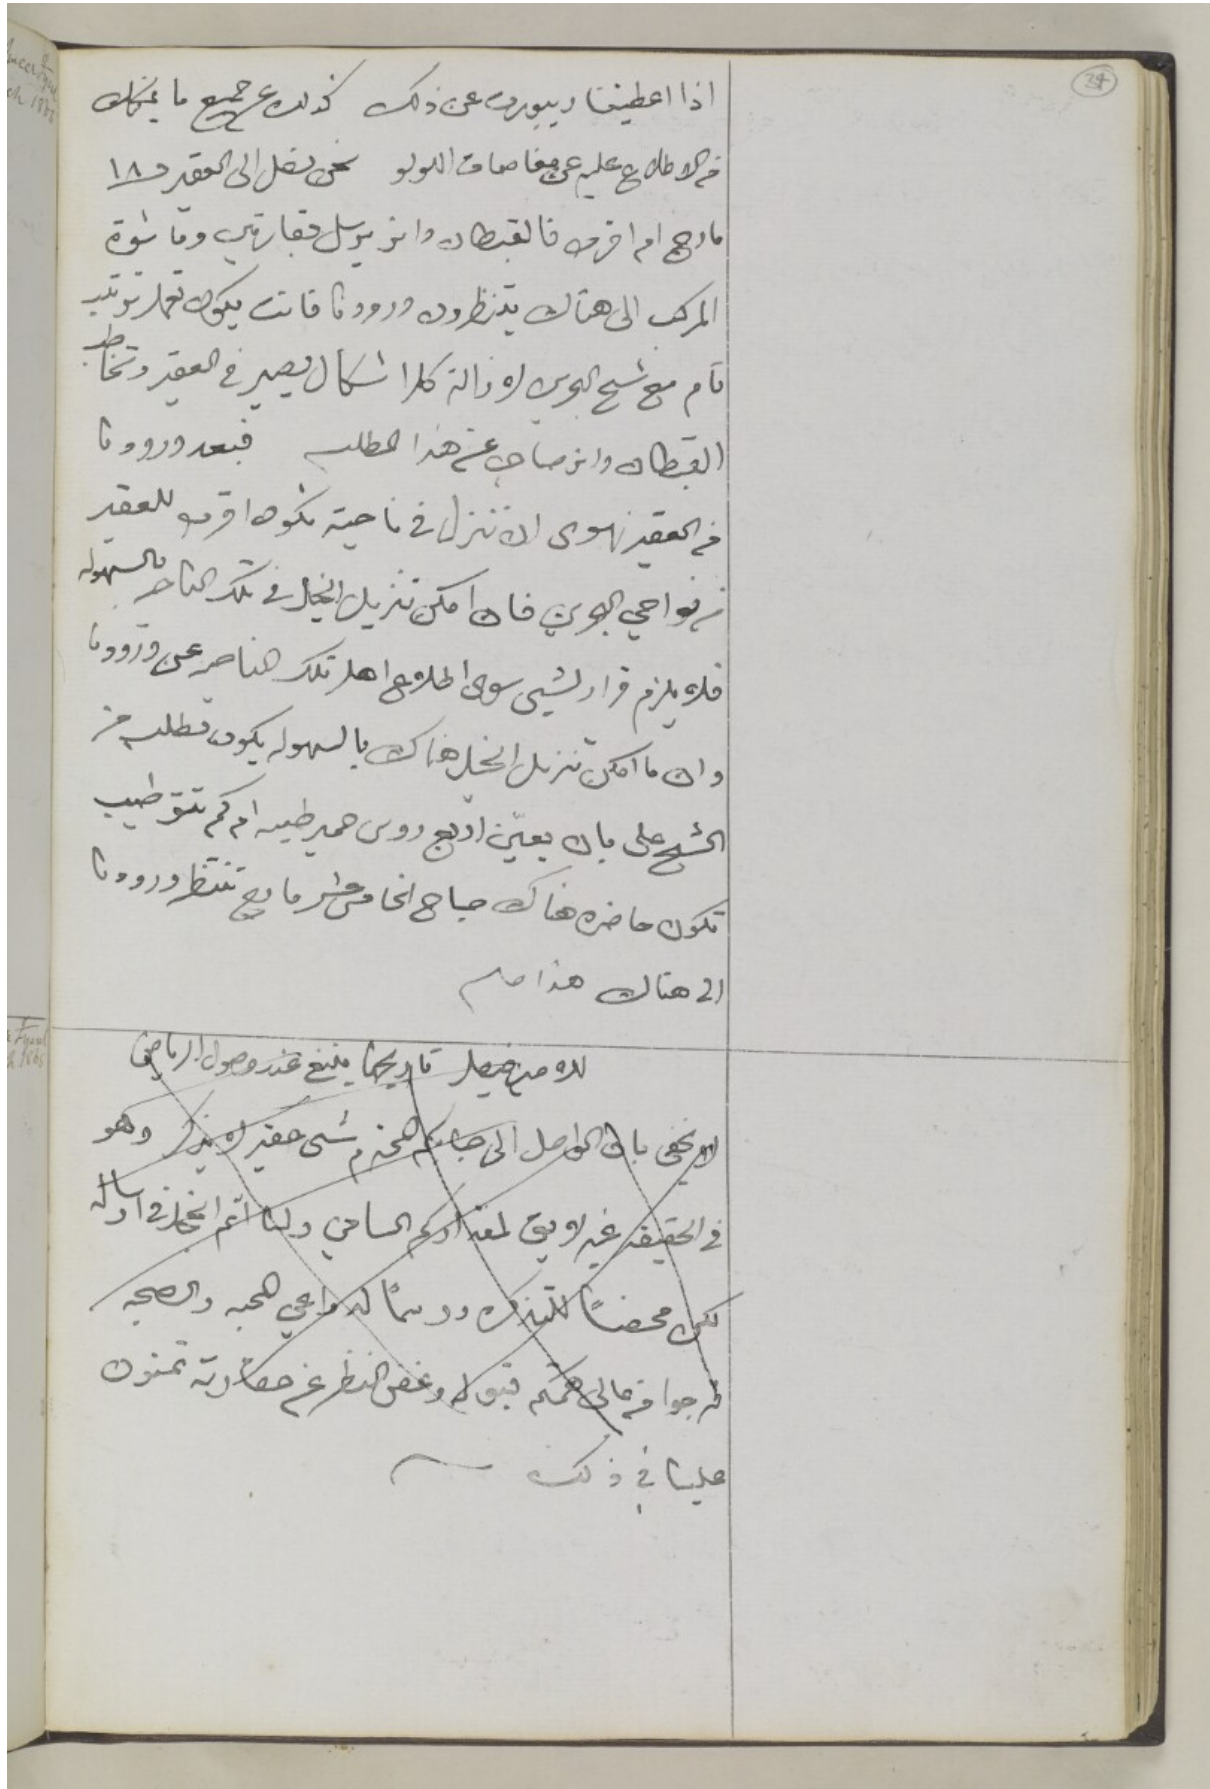 34
اذا اعطيتنا ريبورت عن ذلك كذلك عن جميع ما يمكنك
من الاطلاع عليه عن مغاصات اللولو نحن نصل الى العقير في ١٨
مارچ ام اقرب فالقبطان وانز يرسل وتماشوة
المركب الى هناك ينتظرون ورودنا فانت يكون تعمل ترتيب
تام مع شيخ البحرين لازالة كلا اشكال يصير في العقير وتخاطب
القبطان وانز صاحب عن هذا المطلب فبعد ورودنا
من العقير نهوى ان ننزل في ناحية تكون اقرب للعقير
من نواحي البحرين فان امكن تنزيل الخيل في تلك الناحيه بالسهوله
فلا يلزم قرار لشيى سوى اطلاع اهل تلك الناحيه عن ورودنا
وان ما امكن تنزيل الخيل هناك بالسهوله يكون تطلب من
الشيخ على بان يعيّن اربع روس حمير طيبه ام كم طيب
تكون حاضره هناك صباح الخامس عشر مارچ تنتظر ورودنا
الى هناك هذا
للامير فيصل تاريخها عند وصول الرياض
لا يخفى بان الواصل الى جنابكم المحترم شى حقير لا يذكر وهو
في الحقيقه غير لايق لمقداركم السامي ولنا اتم الخجل في ارساله
لكن محضاً للتذكره ورسماً لدواعي المحبه والصحبه
نرجوا من عالى همتكم قبوله وغض النظر عن حقارته تمنون
علينا في ذلك